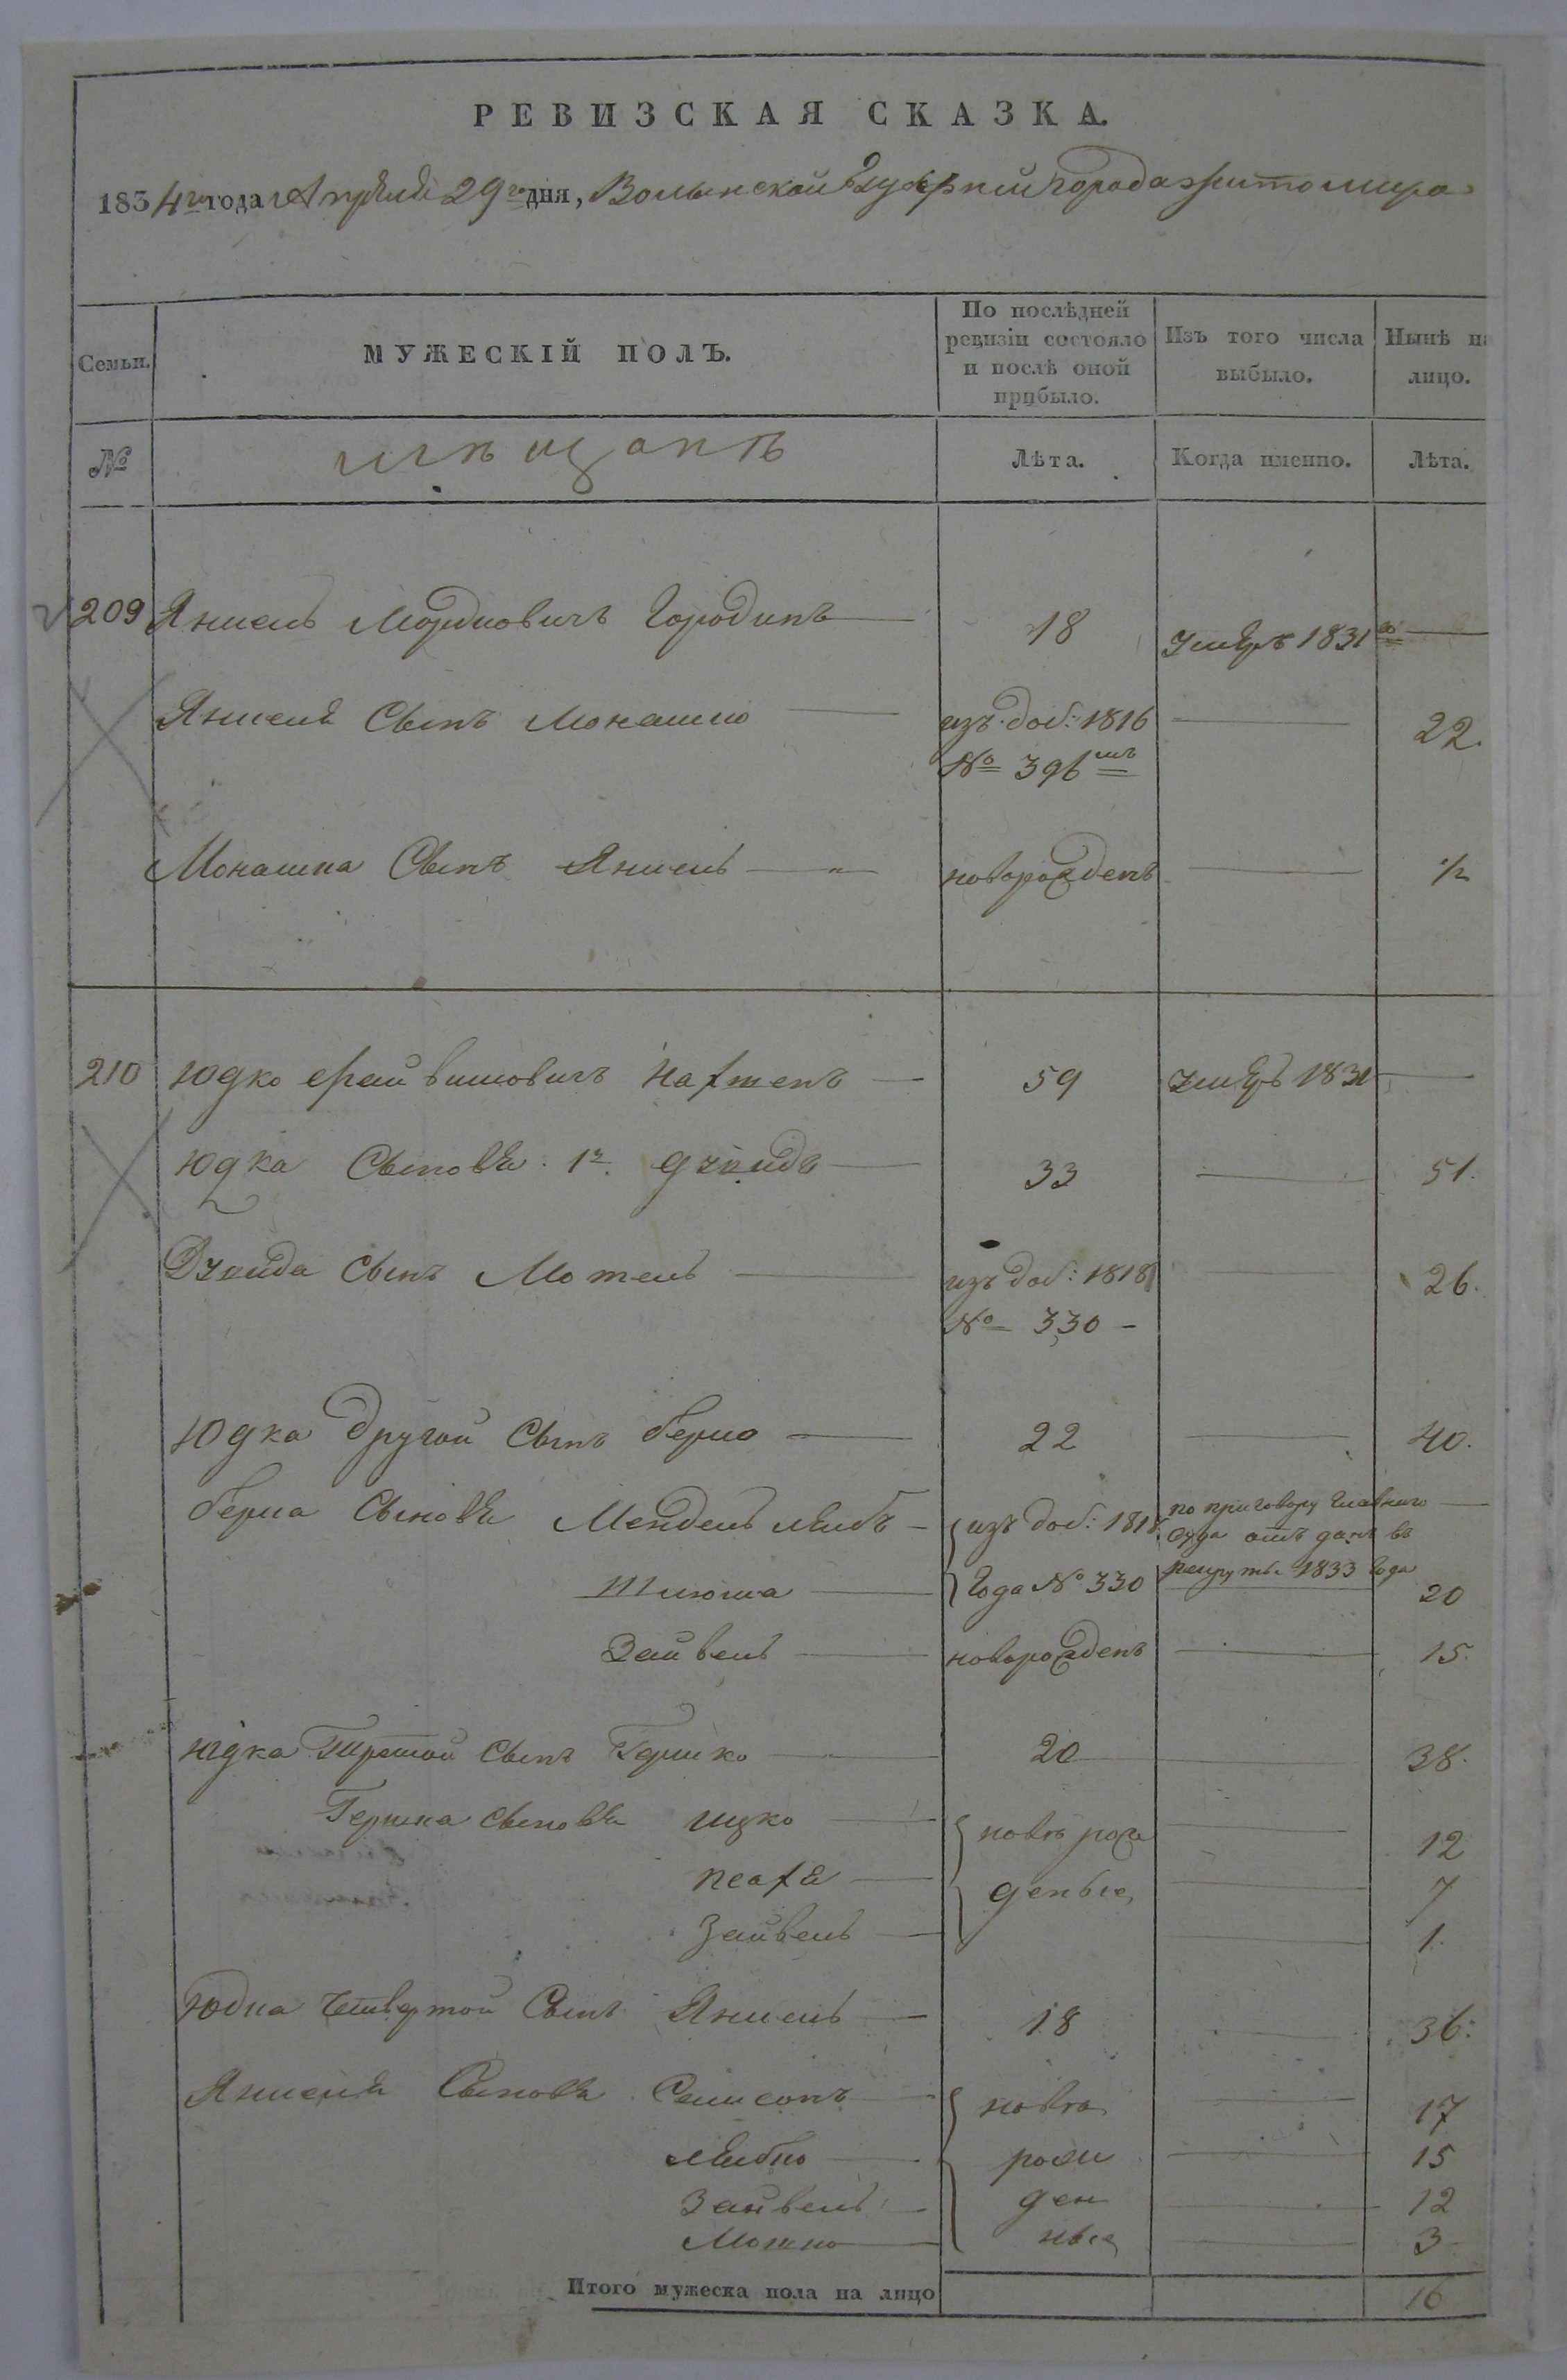 РЕВИЗСКАЯ СКАЗКА.
1834го года Апреля 29го дня, Волынской Губерніи города Житомира
Семьи. МУЖЕСКІЙ ПОЛЪ. По послѣдней ревизіи состояло и послѣ оной прибыло. Изъ того числа выбыло. Нынѣ на лицо.
№ мѣщанѣ Лѣта. Когда именно. Лѣта.
209 Янкель Мордковичъ Городинъ 18 умеръ 1831го
Янкеля Сынъ Монашко изъ доб: 1816 22.
№ 396мъ
Монашка Сынъ Янкель новорожденъ 1/2
210 Юдко Хаимовичъ 59 умеръ 1831
Юдка Сыновья 1й. Дзюидъ 33 51.
Дзюида Сынъ Мотель изъ доб: 1818 26.
№ 330
Юдка другой Сынъ Берко 22 40.
Берка Сыновья Мендель Лейбъ изъ доб: 1818 по приговору Главнаго
Суда отъ данъ въ
Шлюма Года № 330 рекруты 1833 Года 20
Зайвель новорожденъ 15.
Юдка Третой Сынъ Гершко 20 38.
Гершка Сыновья Ицко ново рож 12
деные, 7
Зайвель 1.
Юдка Четвертой Сынъ Янкель 18 36.
Янкеля Сыновья Самсонъ ново 17
Лейбко рож 15
Зайвель ден 12
Мошко ные 3
Итого мужеска пола на лицо 16